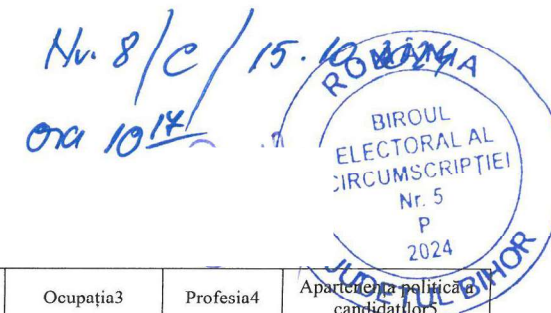 Nr. 8/C/15.10.2024
ora 10 17
ROMÂNIA
BIROUL
ELECTORAL AL
CIRCUMSCRIPȚIEI
Nr. 5
P
2024
JUDEȚUL BIHOR
Ocupația3 Profesia4 Apartenența politică a
candidaților5